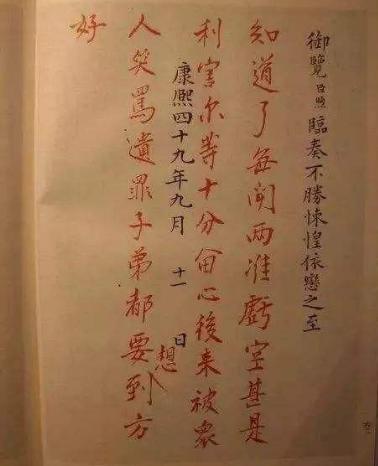 御覽臣煦臨奏不勝悚惶依戀之至
知道了每聞兩淮虧空甚是
利害尔等十分畱心後来被衆
康熙四十九年九月 十一 日
人笑罵遺罪子弟都要想到方
好